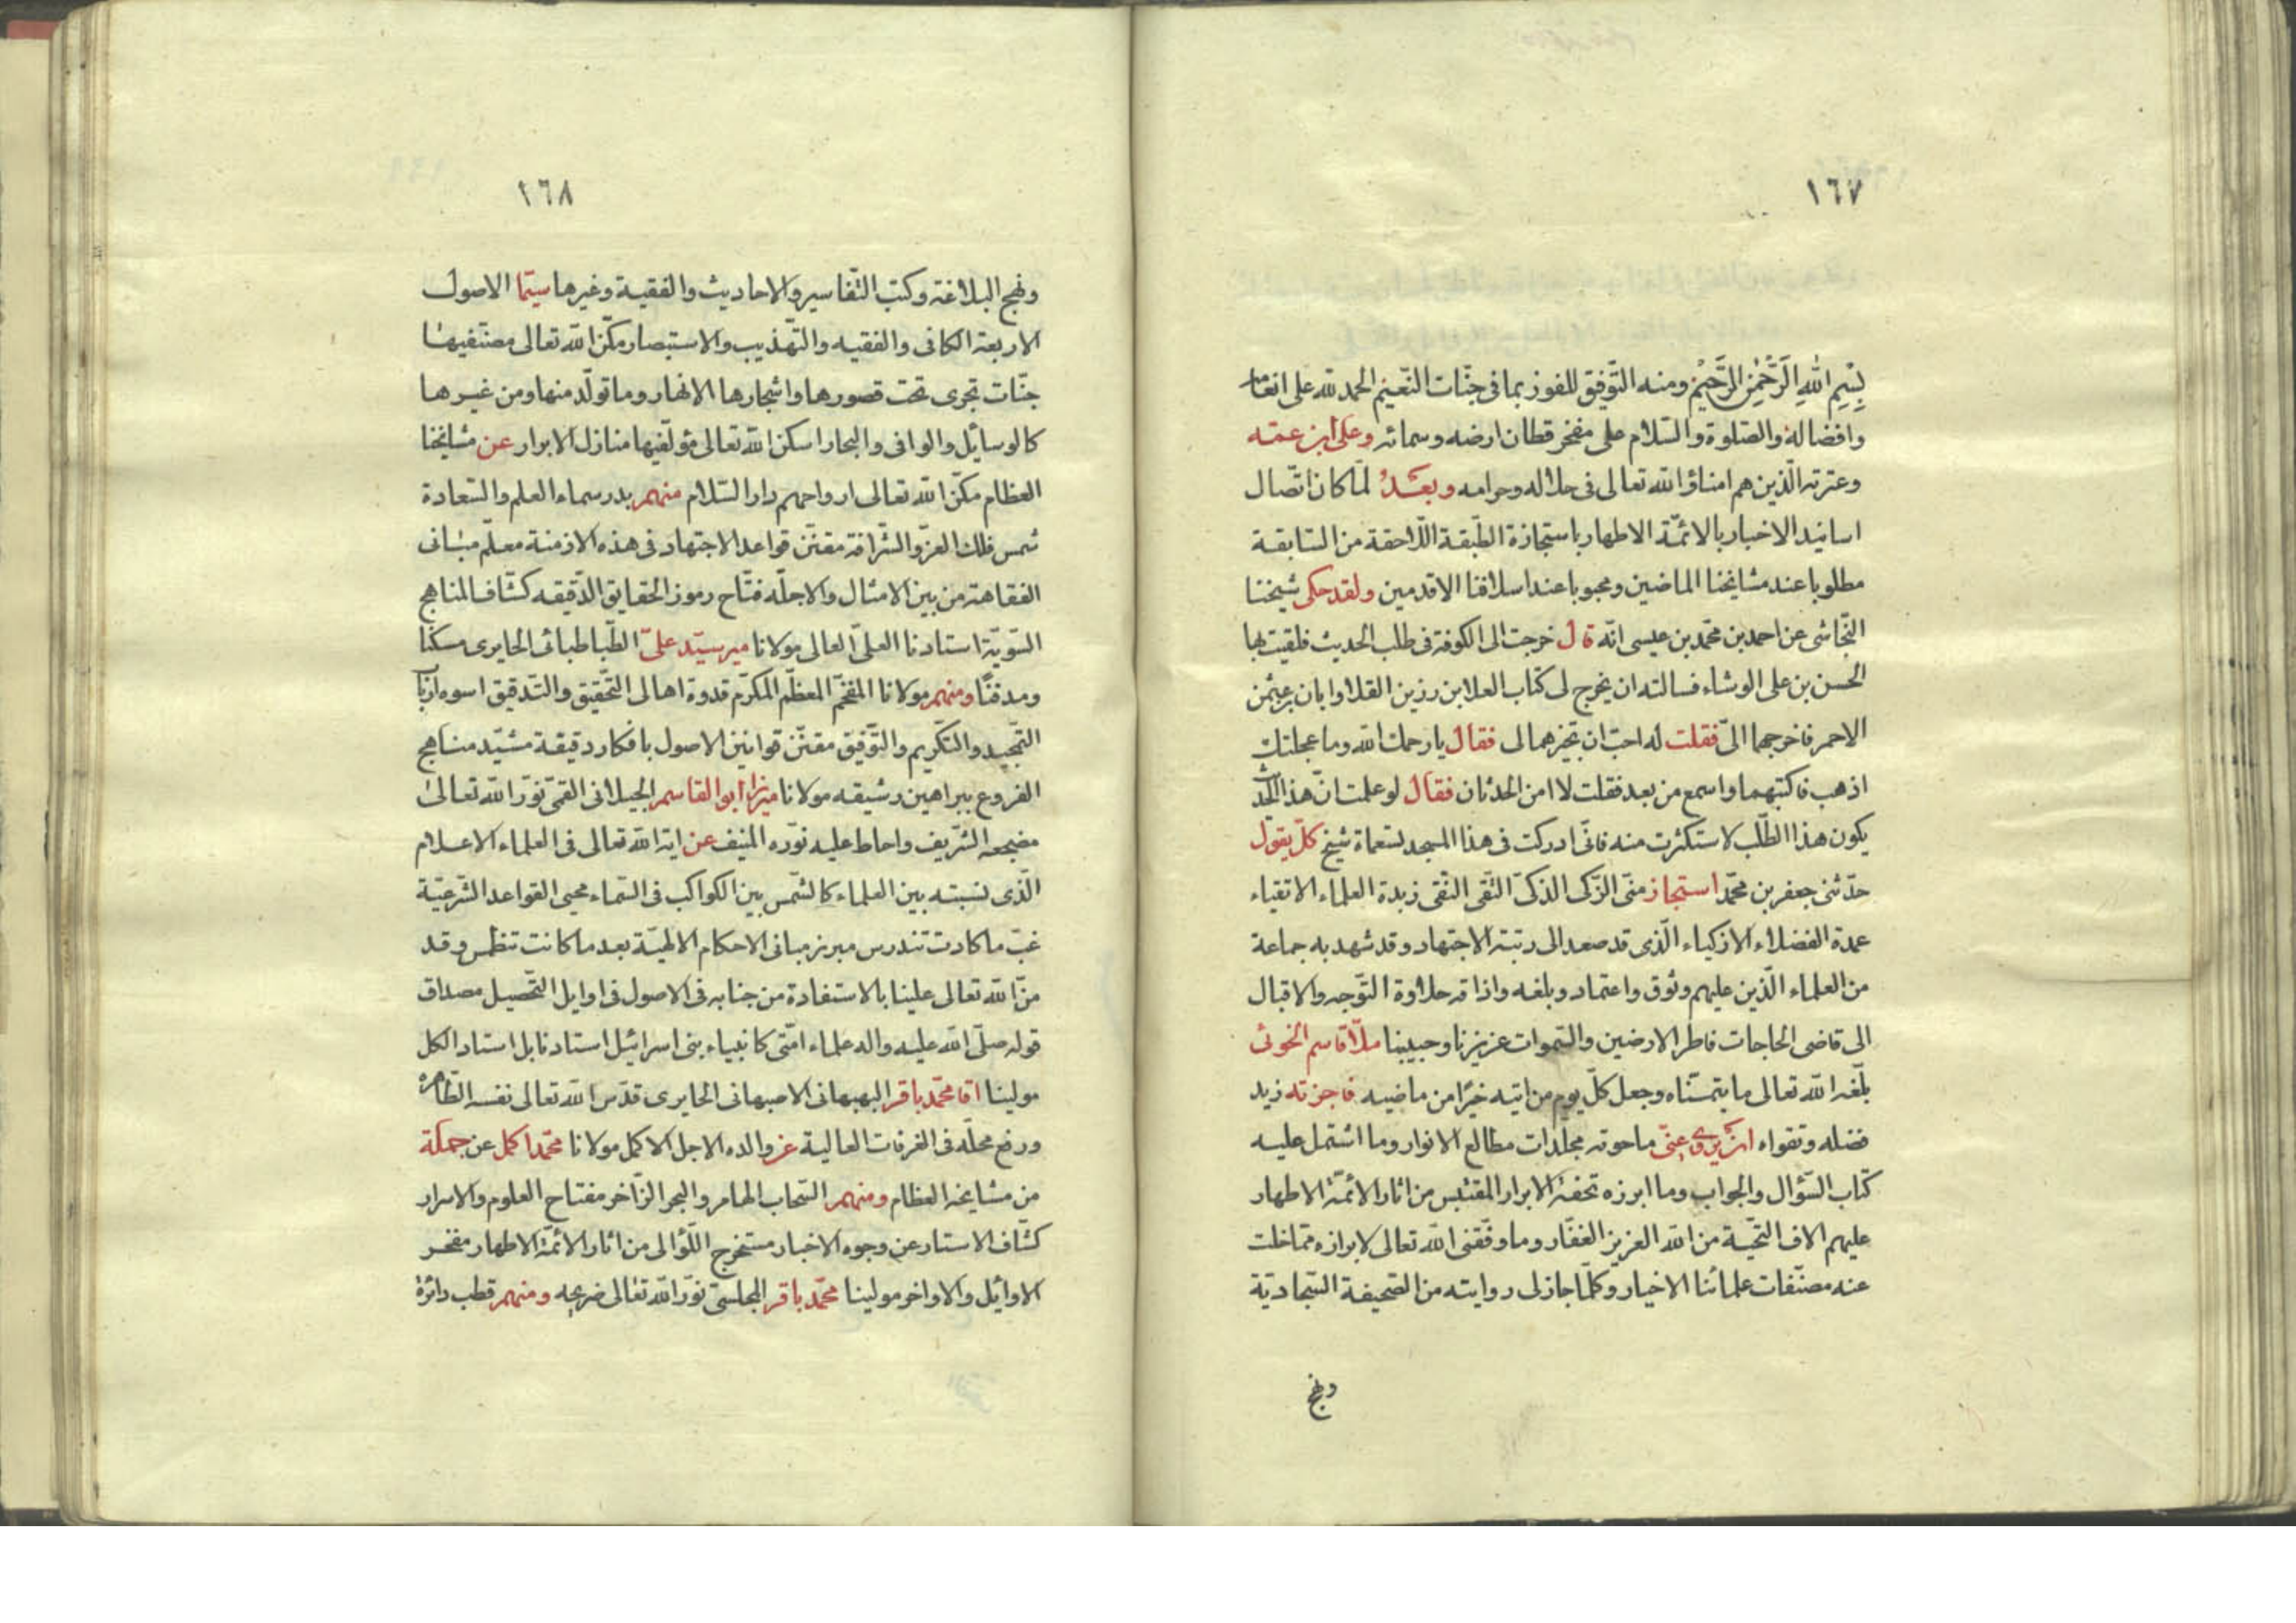 ١٦٧
بِسْمِ اللهِ الرَّحْمٰنِ الرَّحِيْمِ ومنه التّوفيق للفوز بما فى جنّات النّعيم الحمد لله على انعامه
وافضاله والصّلوة والسّلام على مفخر قطان ارضه وسمائه وعلى ابن عمّه
وعترته الّذين هم امناؤ الله تعالى فى حلاله وحرامه وبعد لمّا كان اتّصال
اسانيد الاخبار بالائمّة الاطهار باستجازة الطّبقة اللّاحقة من السّابقة
مطلوبا عند مشايخنا الماضين ومحبوبا عند اسلافنا الاقدمين ولقد حكى شيخنا
النّجاشى عن احمد بن محمّد بن عيسى انّه قال خرجت الى الكوفة فى طلب الحديث فلقيت بها
الحسن بن على الوشاء فسالته ان يخرج لى كتاب العلا بن رزين القلا وابان بن عثمن
الاحمر فاخرجهما الىّ فقلت له احبّ ان تجيزهما لى فقال يا رحمك الله وما عجلتك
اذهب فاكتبهما واسمع من بعد فقلت لا امن الحدثان فقال لو علمت انّ هذا الحديث
يكون هذا الطّلب لاستكثرت منه فانّى ادركت فى هذا المسجد تسعماة شيخ كلّ يقول
حدّثنى جعفر بن محمّد استجاز منّى الزّكى الذكىّ التّقى النّقى زبدة العلماء الاتقياء
عمدة الفضلاء الازكياء الّذى قد صعد الى رتبة الاجتهاد وقد شهد به جماعة
من العلماء الّذين عليهم وثوق واعتماد وبلغه واذاقه حلاوة التّوجه والاقبال
الى قاضى الحاجات فاطر الارضين والسّموات عزيزنا وحبيبنا ملّا قاسم الخوئى
بلّغه الله تعالى ما يتمنّاه وجعل كلّ يوم من اتيه خيرًا من ماضيه فاجزته زيد
فضله وتقواه ان يروى عنّى ما حوته مجلّدات مطالع الانوار وما اشتمل عليه
كتاب السّؤال والجواب وما ابرزه تحفة الابرار المقتبس من اثار الائمّة الاطهار
عليهم الاف التّحيّة من الله العزيز الغفّار وما وفّقنى الله تعالى لابرازه ممّا خلت
عنه مصنّفات علمائنا الاخيار وكلّما جاز لى روايته من الصّحيفة السّجاديّة
ونهج
١٦٨
ونهج البلاغة وكتب التّفاسير والاحاديث والفقيه وغيرها سيّما الاصول
الاربعة الكافى والفقيه والتّهذيب والاستبصار مكّن الله تعالى مصنّفيها
جنّات تجرى تحت قصورها واشجارها الانهار وما تولّد منها ومن غيرها
كالوسايل والوافى والبحار اسكن الله تعالى مؤلّفيها منازل الابرار عن مشايخنا
العظام مكّن الله تعالى ارواحهم دار السّلام منهم بدر سماء العلم والسّعادة
شمس فلك العزّ والشّرافة مقنّن قواعد الاجتهاد فى هذه الازمنة معلّم مبانى
الفقاهة من بين الامثال والاجلّه فتّاح رموز الحقايق الدّقيقه كشّاف المناهج
السّويّة استادنا العلىّ العالى مولانا مير سيّد علىّ الطّباطبائى الحايرى مسكنا
ومدفنًا ومنهم مولانا المفخّم المعظّم المكرّم قدوة اهالى التّحقيق والتّدقيق اسوه ارباب
التّمجيد والتكريم والتّوفيق مقنّن قوانين الاصول بافكار دقيقة مشيّد مناهج
الفروع ببراهين رشيقه مولانا ميرزا ابو القاسم الجيلانى القمى نوّر الله تعالى
مضجعه الشّريف واحاط عليه نوّره المنيف عن اية الله تعالى فى العلماء الاعلام
الّذى نسبته بين العلماء كالشّمس بين الكواكب فى السّماء محيى القواعد الشّرعيّة
غبّ ما كادت تندرس مبرز مبانى الاحكام الالهيّة بعد ما كانت تنطمس وقد
منّ الله تعالى علينا بالاستفادة من جنابه فى الاصول فى اوايل التّحصيل مصداق
قوله صلّى الله عليه واله علماء امّتى كانبياء بنى اسرائيل استادنا بل استاد الكل
مولينا اقا محمّد باقر البهبهانى الاصبهانى الحايرى قدّس الله تعالى نفسه الطّاهرة
ورفع محلّه فى الغرفات العالية عن والده الاجل الاكمل مولانا محمّد اكمل عن جملة
من مشايخه العظام ومنهم السّحاب الهامر والبحر الزّاخر مفتاح العلوم والاسرار
كشّاف الاستار عن وجوه الاخبار مستخرج اللّؤالى من اثار الائمّة الاطهار مفخر
الاوايل والاواخر مولينا محمّد باقر المجلسى نوّر الله تعالى ضريحه ومنهم قطب دائرة